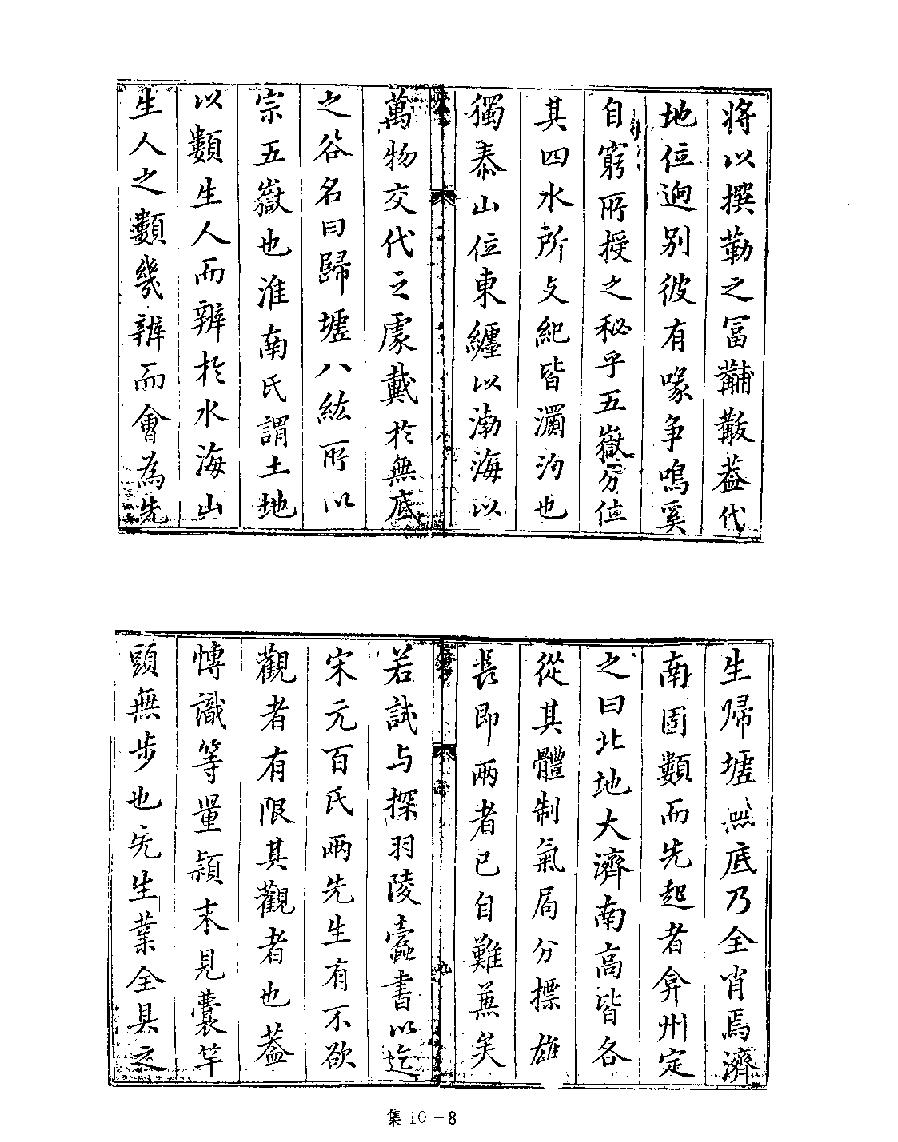 將以撰勒之冨黼黻葢代
地位逈別彼有喙争鳴奚
自窮所授之秘乎五嶽分位
其四水所攴紀皆瀰汋也
獨泰山位東纏以渤海以
萬物交代之處戴於無底
之谷名曰歸墟八紘所以
宗五嶽也淮南氏謂土地
以類生人而辨於水海山
生人之類幾辨而會為先
生歸墟無底乃全肖焉濟
南固類而先起者弇州定
之曰北地大濟南高皆各
從其體制氣局分標雄
長即兩者已自難兼矣
若試与探羽陵蠧書以迄
宋元百氏兩先生有不欲
觀者有限其觀者也葢
慱識等量頴末見囊竿
頭無步也先生業全具之
集10-8